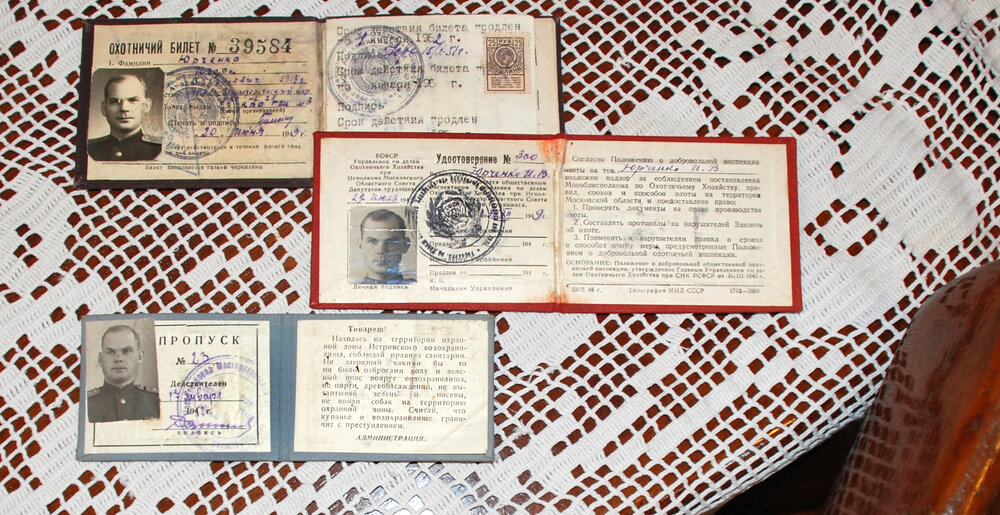 ОХОТНИЧИЙ БИЛЕТ № 39584
1. Фамилия Юрченко
Игорь
Печать и подпись
20 июня 1949 г.
в течение одного года
Билет заполняется только чернилами
Срок действия билета продлен
января 1952 г.
Подпись
Срок действия билета
января 195 г.
Подпись
Срок действия продлен
25 РУБ 25
ПОШЛИНА
РСФСР
Управление по делам
Охотничьего Хозяйства
при
Исполкоме Московского
Областного Совета
Депутатов трудящихся
29 июля
Личная подпись
Удостоверение № 300
Юрченко И. В.
общественным
Инспектором
Охотничьего Хозяйства при Испол-
Областного Совета
9 г.
Управления
Продлен 194 г.
Управления
Продлен по 194 г.
м. п.
Начальник Управления
Согласно Положению о добровольной инспекции
охоты на тов. Юрченко И. В.
возложен надзор за соблюдением постановлений
Мособлисполкома по Охотничьему Хозяйству, пра-
вил, сроков и способов охоты на территории
Московской области и предоставлено право:
1. Проверять документы на право производства
охоты.
2. Составлять протоколы на нарушителей Законов
об охоте.
3. Применять к нарушителям правил о сроках
и способах охоты меры, предусмотренные Положе-
нием о добровольной охотничьей инспекции.
ОСНОВАНИЕ: Положение о добровольной общественной охот-
ничьей инспекции, утвержденное Главным Управлением по де-
лам Охотничьего Хозяйства при СНК РСФСР от
Типография МИД СССР 1703—2000
ПРОПУСК
№ 23
Действителен
17 января
194 г.
подпись
Товарищ!
Находясь на территории охран-
ной зоны Истринского водохрани-
лища, соблюдай правила санитарии.
Не загрязняй какими бы то
ни было отбросами воду и зеле-
ный пояс вокруг водохранилища,
не порти древонасаждений, не вы-
таптывай зелень и посевы,
не вводи собак на территорию
охранной зоны. Считай, что
купанье в водохранилище грани-
чит с преступлением.
АДМИНИСТРАЦИЯ.